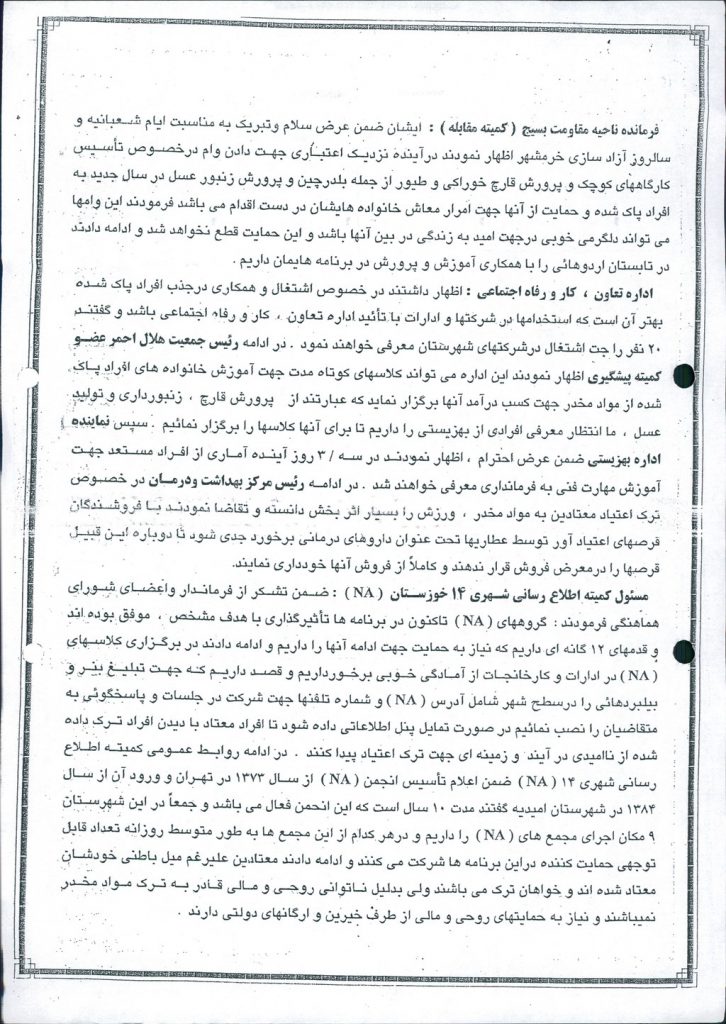 فرمانده ناحیه مقاومت بسیج ( کمیته مقابله ) : ایشان ضمن عرض سلام وتبریک به مناسبت ایام شعبانیه و
سالروز آزاد سازی خرمشهر اظهار نمودند درآینده نزدیک اعتباری جهت دادن وام درخصوص تأسیس
کارگاههای کوچک و پرورش قارچ خوراکی و طیور از جمله بلدرچین و پرورش زنبور عسل در سال جدید به
افراد پاک شده و حمایت از آنها جهت امرار معاش خانواده هایشان در دست اقدام می باشد فرمودند این وامها
می تواند دلگرمی خوبی درجهت امید به زندگی در بین آنها باشد و این حمایت قطع نخواهد شد و ادامه دادند
در تابستان اردوهائی را با همکاری آموزش و پرورش در برنامه هایمان داریم .
اداره تعاون ، کار و رفاه اجتماعی : اظهار داشتند در خصوص اشتغال و همکاری درجذب افراد پاک شده
بهتر آن است که استخدامها در شرکتها و ادارات با تأئید اداره تعاون ، کار و رفاه اجتماعی باشد و گفتند
۲۰ نفر را جت اشتغال درشرکتهای شهرستان معرفی خواهند نمود . در ادامه رئیس جمعیت هلال احمر عضو
کمیته پیشگیری اظهار نمودند این اداره می تواند کلاسهای کوتاه مدت جهت آموزش خانواده های افراد پاک
شده از مواد مخدر جهت کسب درآمد آنها برگزار نماید که عبارتند از پرورش قارچ ، زنبورداری و تولید
عسل ، ما انتظار معرفی افرادی از بهزیستی را داریم تا برای آنها کلاسها را برگزار نمائیم . سپس نماینده
اداره بهزیستی ضمن عرض احترام ، اظهار نمودند در سه / ۳ روز آینده آماری از افراد مستعد جهت
آموزش مهارت فنی به فرمانداری معرفی خواهند شد . در ادامه رئیس مرکز بهداشت ودرمان در خصوص
ترک اعتیاد معتادین به مواد مخدر ، ورزش را بسیار اثر بخش دانسته و تقاضا نمودند با فروشندگان
قرصهای اعتیاد آور توسط عطاریها تحت عنوان داروهای درمانی برخورد جدی شود تا دوباره این قبیل
قرصها را درمعرض فروش قرار ندهند و کاملاً از فروش آنها خودداری نمایند.
مسئول کمیته اطلاع رسانی شهری ۱۴ خوزستان ( NA ) : ضمن تشکر از فرماندار واعضای شورای
هماهنگی فرمودند : گروههای ( NA ) تاکنون در برنامه ها تأثیرگذاری با هدف مشخص ، موفق بوده اند
و قدمهای ۱۲ گانه ای داریم که نیاز به حمایت جهت ادامه آنها را داریم و ادامه دادند در برگزاری کلاسهای
( NA ) در ادارات و کارخانجات از آمادگی خوبی برخورداریم و قصد داریم که جهت تبلیغ بنر و
بیلبردهائی را درسطح شهر شامل آدرس ( NA ) و شماره تلفنها جهت شرکت در جلسات و پاسخگوئی به
متقاضیان را نصب نمائیم در صورت تمایل پنل اطلاعاتی داده شود تا افراد معتاد با دیدن افراد ترک داده
شده از ناامیدی در آیند و زمینه ای جهت ترک اعتیاد پیدا کنند . در ادامه روابط عمومی کمیته اطلاع
رسانی شهری ۱۴ ( NA ) ضمن اعلام تأسیس انجمن ( NA ) از سال ۱۳۷۳ در تهران و ورود آن از سال
۱۳۸۴ در شهرستان امیدیه گفتند مدت ۱۰ سال است که این انجمن فعال می باشد و جمعاً در این شهرستان
۹ مکان اجرای مجمع های ( NA ) را داریم و درهر کدام از این مجمع ها به طور متوسط روزانه تعداد قابل
توجهی حمایت کننده دراین برنامه ها شرکت می کنند و ادامه دادند معتادین علیرغم میل باطنی خودشان
معتاد شده اند و خواهان ترک می باشند ولی بدلیل ناتوانی روحی و مالی قادر به ترک مواد مخدر
نمیباشند و نیاز به حمایتهای روحی و مالی از طرف خیرین و ارگانهای دولتی دارند .